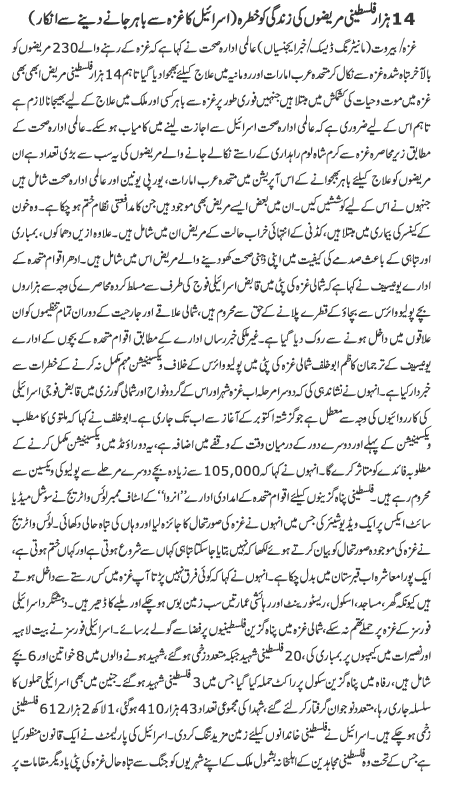 14 ہزار فلسطینی مریضوں کی زندگی کو خطرہ (اسرائیل کا غزہ سے باہر جانے دینے سے انکار)
غزہ / بیروت (مانیٹرنگ ڈیسک / خبر ایجنسیاں) عالمی ادارہ صحت نے کہا ہے کہ غزہ کے رہنے والے 230 مریضوں کو
بالآخر تباہ شدہ غزہ سے نکال کر متحدہ عرب امارات اور رومانیہ میں علاج کیلئے بھجوا دیا گیا تاہم 14 ہزار فلسطینی مریض ابھی بھی
غزہ میں موت و حیات کی کشمکش میں مبتلا ہیں جنہیں فوری طور پر غزہ سے باہر کسی اور ملک میں علاج کے لیے بھیجانا لازم ہے
تاہم اس کے لیے ضروری ہے کہ عالمی ادارہ صحت اسرائیل سے اجازت لینے میں کامیاب ہو سکے۔ عالمی ادارہ صحت کے
مطابق زیر محاصرہ غزہ سے کرم شالوم راہداری کے راستے نکالے جانے والے مریضوں کی یہ سب سے بڑی تعداد ہے ان
مریضوں کو علاج کیلئے باہر بھجوانے کے اس آپریشن میں متحدہ عرب امارات، یورپی یونین اور عالمی ادارہ صحت شامل ہیں
جنہوں نے اس کے لیے کوششیں کیں۔ ان میں بعض ایسے مریض بھی موجود ہیں جن کا مدافعتی نظام ختم ہو چکا ہے۔ وہ خون
کے کینسر کی بیماری میں مبتلا ہیں، کڈنی کے انتہائی خراب حالت کے مریض بھی ان میں شامل ہیں۔ علاوہ ازیں دھماکوں، بمباری
اور تباہی کے باعث صدمے کی کیفیت میں اپنی ذہنی صحت کھو دینے والے مریض بھی اس میں شامل ہیں۔ ادھر اقوام متحدہ کے
ادارے یونیسیف نے کہا ہے کہ شمالی غزہ کی پٹی میں قابض اسرائیلی فوج کی طرف سے مسلط کردہ محاصرے کی وجہ سے ہزاروں
بچے پولیو وائرس سے بچاؤ کے قطرے پلانے کے حق سے محروم ہیں، شمالی علاقے اور جارحیت کے دوران تمام تنظیموں کو ان
علاقوں میں داخل ہونے سے روک دیا گیا ہے۔ غیر ملکی خبر رساں ادارے کے مطابق اقوام متحدہ کے بچوں کے ادارے
یونیسیف کے ترجمان کاظم ابو خلف شمالی غزہ کی پٹی میں پولیو وائرس کے خلاف ویکسینیشن مہم مکمل نہ کرنے کے خطرات سے
خبردار کیا ہے۔ انہوں نے نشاندہی کی کہ دوسرا مرحلہ اب غزہ شہر اور اس کے گردونواح اور شمالی گورنری میں قابض فوجی اسرائیلی
کی کارروائیوں کی وجہ سے معطل ہے جو گزشتہ اکتوبر کے آغاز سے اب تک جاری ہے۔ ابو خلف نے کہا کہ ملتوی کا مطلب
ویکسینیشن کے پہلے اور دوسرے دور کے درمیان وقت کے وقفے میں اضافہ ہے، یہ دو راؤنڈ میں ویکسینیشن مکمل کرنے کے
مطلوبہ فائدے کو متاثر کرے گا۔ انہوں نے کہا کہ 105,000 سے زیادہ بچے دوسرے مرحلے سے پولیو کی ویکسین سے
محروم رہے ہیں۔ فلسطینی پناہ گزینوں کیلئے اقوام متحدہ کے امدادی ادارے ”انروا“ کے اسٹاف ممبر لوئس واٹریج نے سوشل میڈیا
سائٹ ایکس پر ایک ویڈیو شیئر کی جس میں انہوں نے غزہ کی صورتحال کا جائزہ لیا اور وہاں کی تباہ حالی دکھائی۔ لوئس واٹریج
نے غزہ کی موجودہ صورتحال کو بیان کرتے ہوئے لکھا کہ نہیں بتایا جا سکتا تباہی کہاں سے شروع ہوتی ہے اور کہاں ختم ہوتی ہے،
ایک پورا معاشرہ اب قبرستان میں بدل چکا ہے۔ انہوں نے کہا کہ کوئی فرق نہیں پڑتا آپ غزہ میں کس رستے سے داخل ہوتے
ہیں کیونکہ گھر، مساجد، اسکول، ریسٹورینٹ اور رہائشی عمارتیں سب زمین بوس ہو چکے اور ملبے کا ڈھیر ہیں۔ دہشتگرد اسرائیلی
فورسز کے غزہ پر حملے تھم نہ سکے، شمالی غزہ میں پناہ گزین فلسطینیوں پر فضا سے گولے برسائے۔ اسرائیلی فورسز نے بیت لاہیہ
اور نصیرات میں کیمپوں پر بمباری کی، 20 فلسطینی شہید جبکہ متعدد زخمی ہو گئے، شہید ہونے والوں میں 8 خواتین اور 6 بچے
شامل ہیں، رفاہ میں پناہ گزین سکول پر راکٹ حملہ کیا گیا جس میں 3 فلسطینی شہید ہو گئے۔ جنین میں بھی اسرائیلی حملوں کا
سلسلہ جاری رہا، متعدد نوجوان گرفتار کر لئے گئے، شہدا کی مجموعی تعداد 43 ہزار 410 ہو گئی، 1 لاکھ 2 ہزار 612 فلسطینی
زخمی ہو چکے ہیں۔ اسرائیل نے فلسطینی خاندانوں کیلئے زمین مزید تنگ کر دی۔ اسرائیل کی پارلیمنٹ نے ایک قانون منظور کیا
ہے جس کے تحت وہ فلسطینی مجاہدین کے اہلخانہ بشمول ملک کے اپنے شہریوں کو جنگ سے تباہ حال غزہ کی پٹی یا دیگر مقامات پر